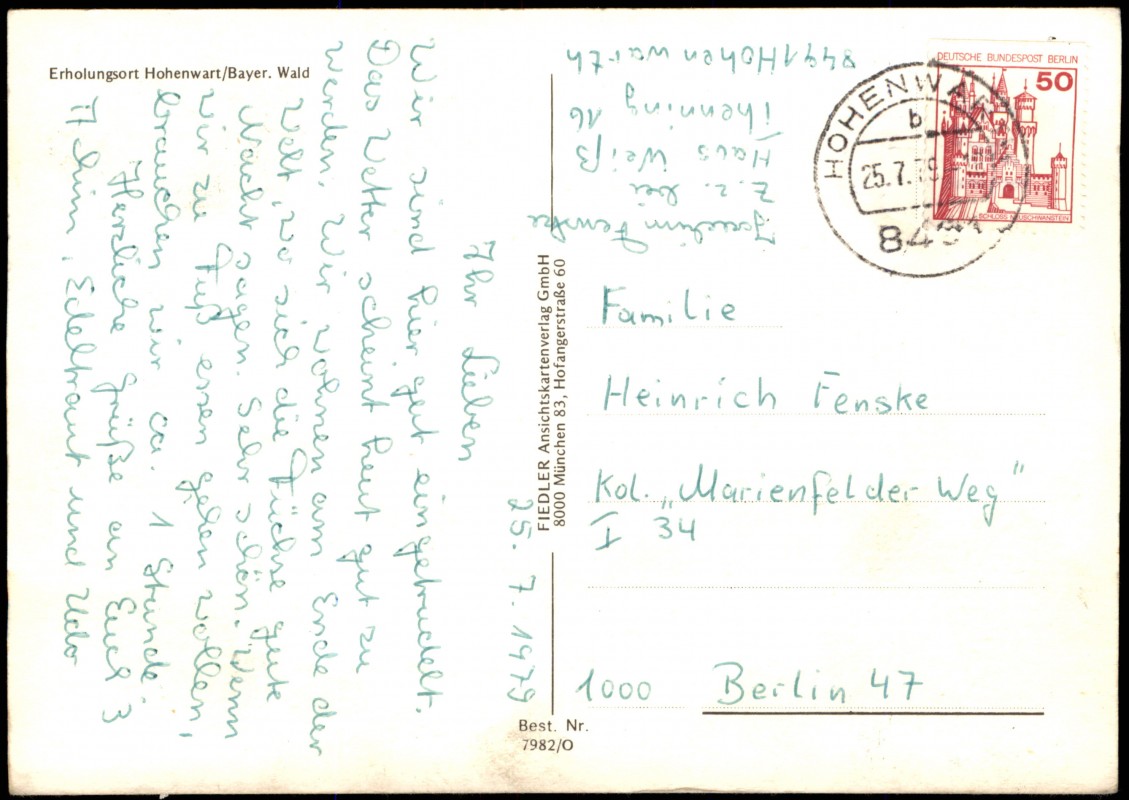 Erholungsort Hohenwart/Bayer. Wald
25. 7. 1979
Ihr Lieben
Wir sind hier gut eingetrudelt.
Das Wetter scheint heut gut zu
werden. Wir wohnen am Ende der
Welt, wo sich die Füchse gute
Nacht sagen. Sehr schön. Wenn
wir zu Fuß essen gehen wollen,
brauchen wir ca. 1 Stunde.
Herzliche Grüße an Euch 3
Achim, Edeltraut und Udo
FIEDLER Ansichtskartenverlag GmbH
8000 München 83, Hofangerstraße 60
Best. Nr.
7982/O
Joachim Fenske
z. Z. bei
Haus Weiß
Thenning 16
8491 Hohenwarth
DEUTSCHE BUNDESPOST BERLIN
50
SCHLOSS NEUSCHWANSTEIN
HOHENWA
b
25.7.79
8491
Familie
Heinrich Fenske
Kol. „Marienfelder Weg"
I 34
1000 Berlin 47